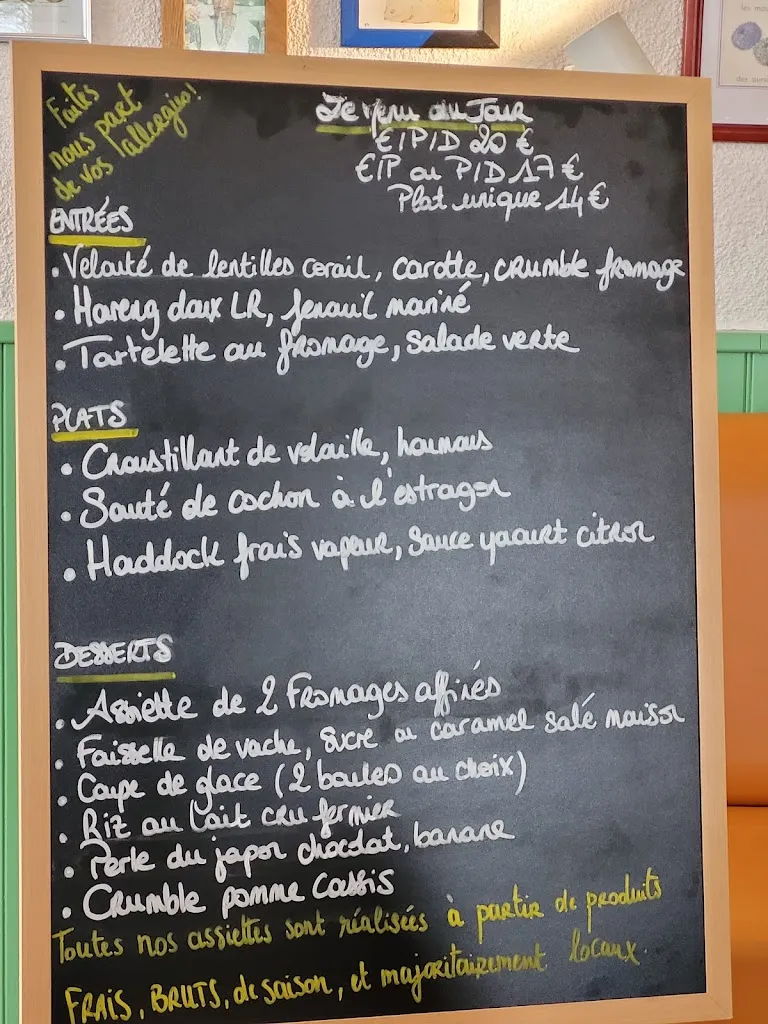 Faites
nous part
de vos allergies!
Le Menu du Jour
E/P/D 20 €
E/P ou P/D 17 €
Plat unique 14 €
ENTRÉES
• Velouté de lentilles corail, carotte, crumble fromage
• Hareng doux LR, fenouil mariné
• Tartelette au fromage, salade verte
PLATS
• Croustillant de volaille, houmous
• Sauté de cochon à l'estragon
• Haddock frais vapeur, sauce yaourt citron
DESSERTS
• Assiette de 2 Fromages affinés
• Faisselle de vache, sucre ou caramel salé maison
• Coupe de glace (2 boules au choix)
• Riz au lait cru fermier
• Perle du japon chocolat, banane
• Crumble pomme cassis
Toutes nos assiettes sont réalisées à partir de produits
FRAIS, BRUTS, de saison, et majoritairement locaux.